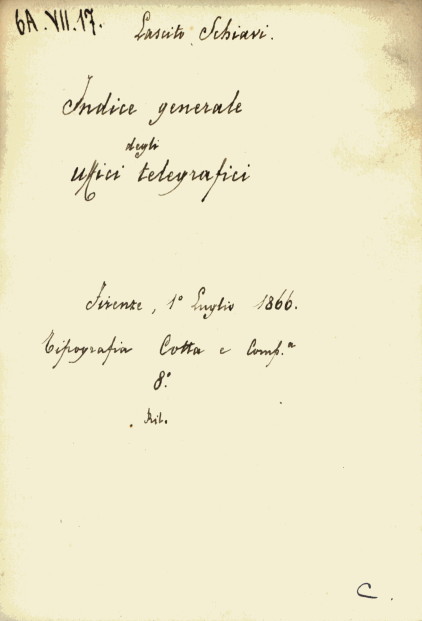 6A.VII.17.
Lascito Schiavi.
Indice generale
degli
uffici telegrafici
Firenze, 1° Luglio 1866.
Tipografia Cotta e Comp.ª
8.°
Ril.
C.